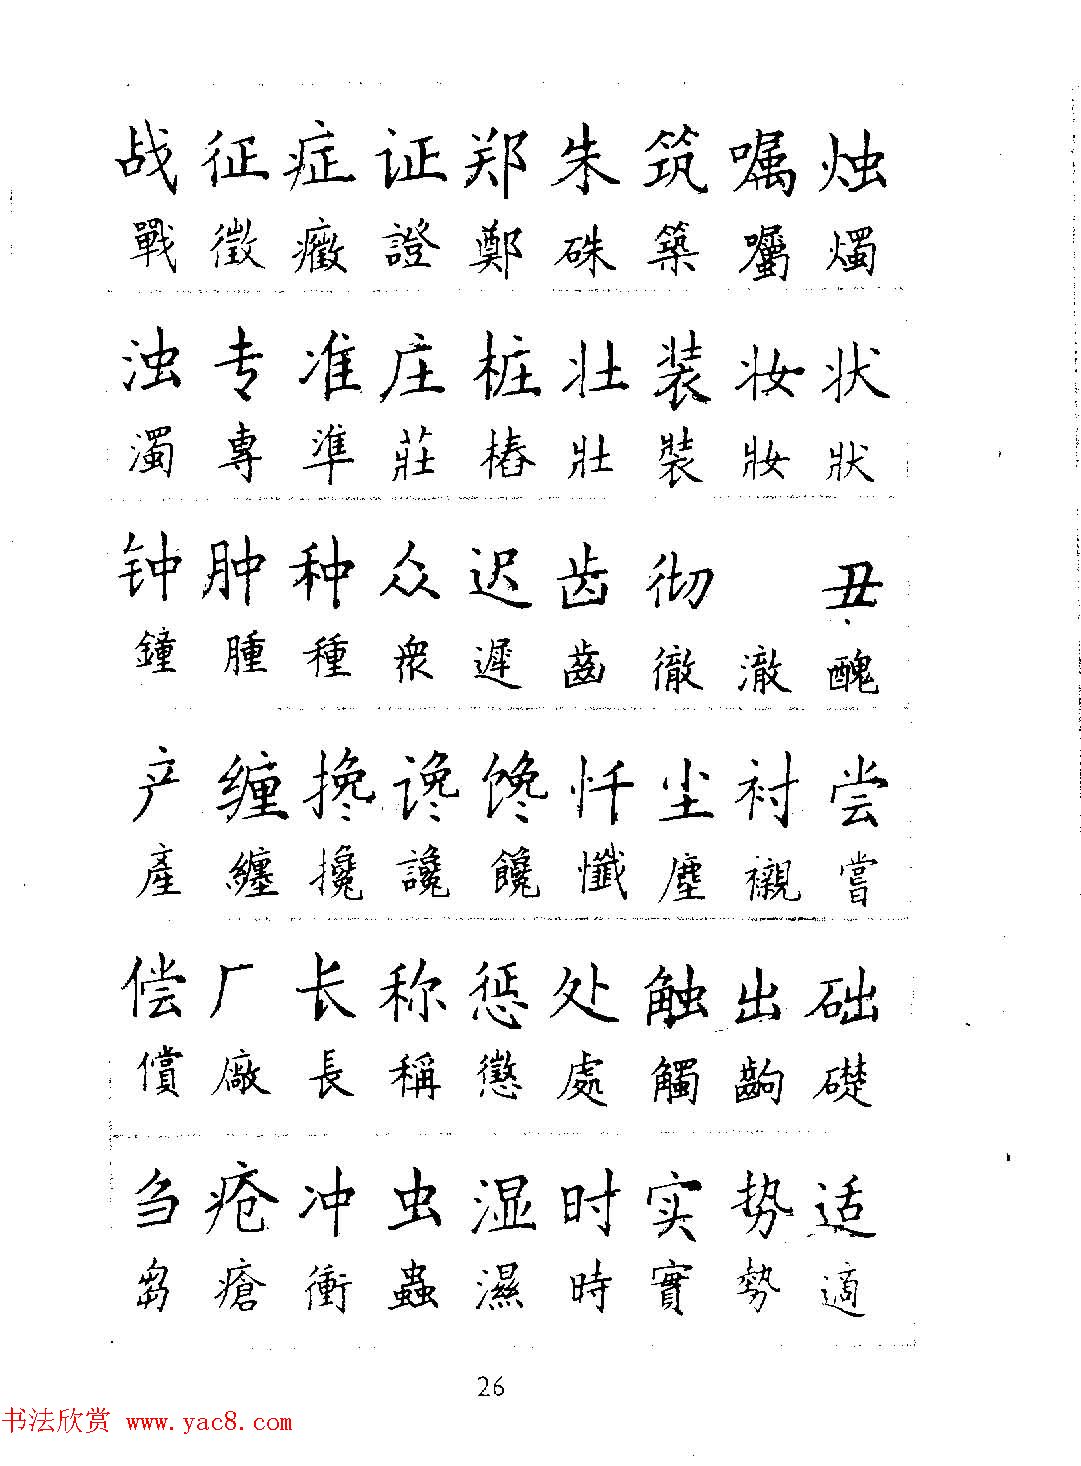 战 征 症 证 郑 朱 筑 嘱 烛
戰 徵 癥 證 鄭 硃 築 囑 燭
浊 专 准 庄 桩 壮 装 妆 状
濁 專 準 莊 樁 壯 裝 妝 狀
钟 肿 种 众 迟 齿 彻 丑
鐘 腫 種 衆 遲 齒 徹 澈 醜
产 缠 搀 谗 馋 忏 尘 衬 尝
產 纏 攙 讒 饞 懺 塵 襯 嘗
偿 厂 长 称 惩 处 触 出 础
償 廠 長 稱 懲 處 觸 齣 礎
刍 疮 冲 虫 湿 时 实 势 适
芻 瘡 衝 蟲 濕 時 實 勢 適
26
书法欣赏 www.yac8.com